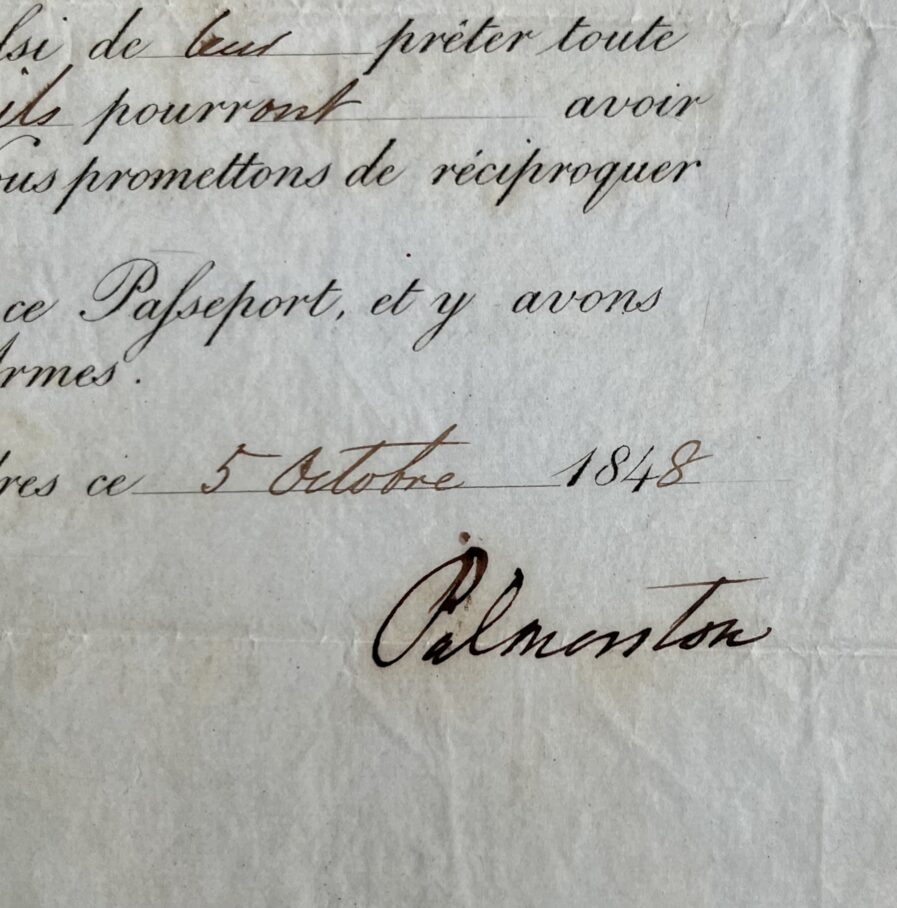 ssi de leur prêter toute
ils pourront avoir
ous promettons de réciproquer
ce Passeport, et y avons
Armes.
res ce 5 Octobre 1848
Palmerston